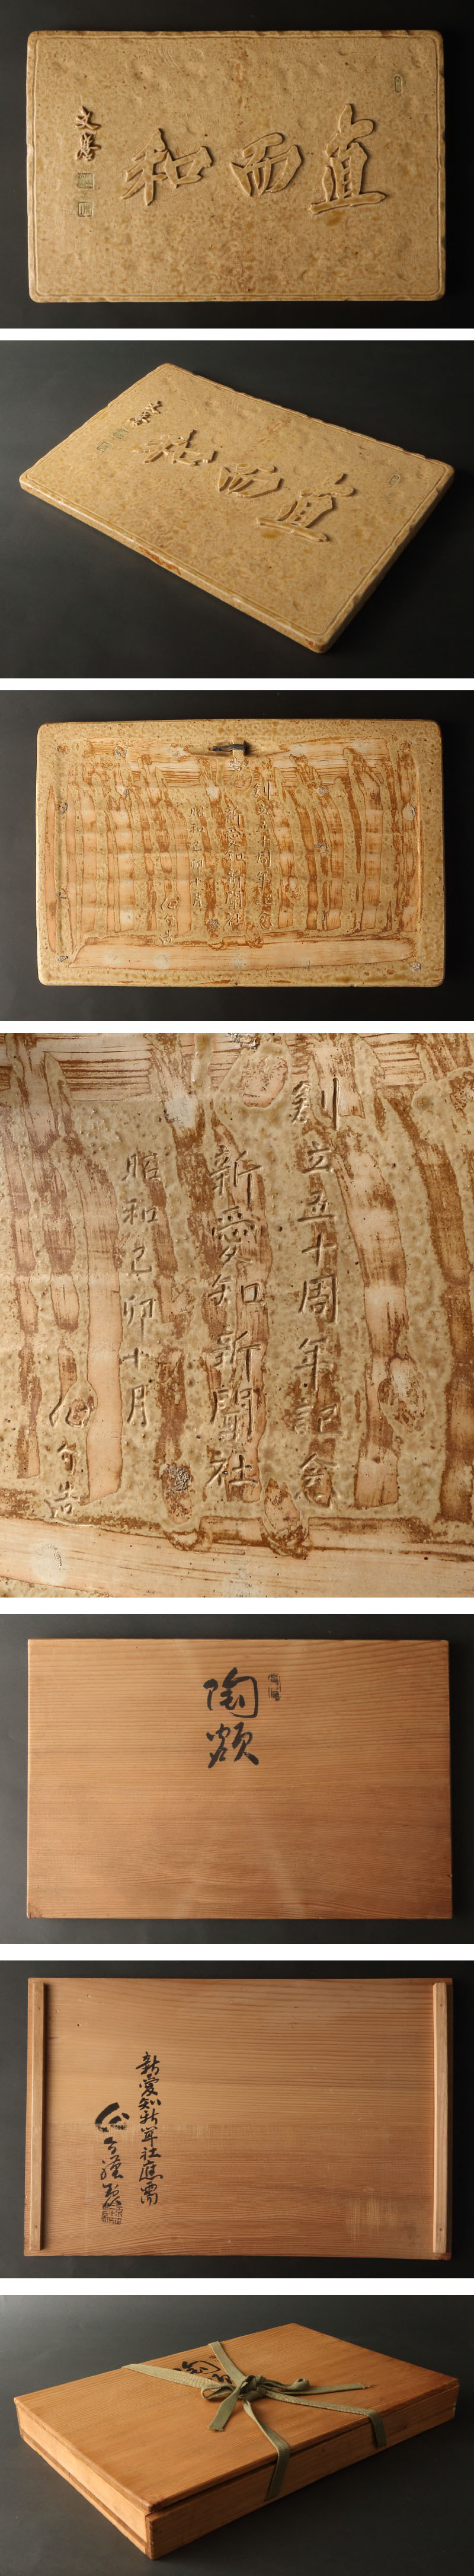 直而和
文麿
直而和
文麿
創立五十周年記念
新愛知新聞社
昭和己卯十月
創立五十周年記念
新愛知新聞社
昭和己卯十月
造
陶額
新愛知新聞社應需
謹製
陶